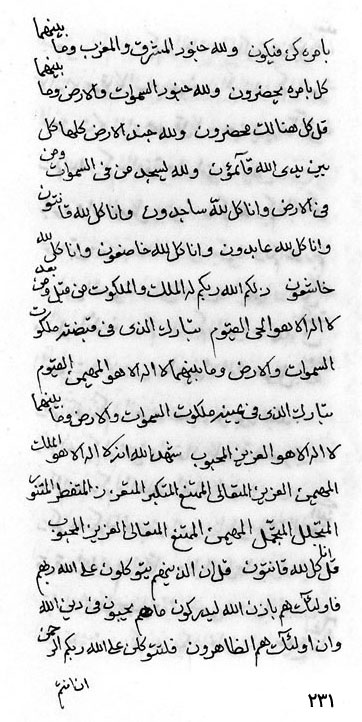 بامره كن فيكون ولله جنود المشرق والمغرب وما بينهما
كل بامره يحضرون ولله جنود السموات والارض وما بينهما
قل كل هنالك محضرون ولله جند الارض كلها كل
بين يدى الله قآئمون ولله يسجد من فى السموات ومن
فى الارض وانا كل لله ساجدون وانا كل لله قانتون
وانا كل لله عابدون وانا كل لله خاضعون وانا كل لله
خاشعون ذلكم الله ربكم له الملك والملكوت من قبل ومن بعد
لا اله الا هو الحى القيوم تبارك الذى فى قبضته ملكوت
السموات والارض وما بينهما لا اله الا هو المهيمن القيوم
تبارك الذى فى يمينه ملكوت السموات والارض وما بينهما
لا اله الا هو العزيز المحبوب شهد الله انه لا اله الا هو الملك
المهيمن العزيز المتعالى الممتنع المتكبر
المتجلل المتجمل المهيمن الممتنع المتعالى العزيز المحبوب
قل كل لله قانتون قل ان الذينهم يتوكلون على الله ربهم
فاولئك هم باذن الله ليدركون ما هم يحبون فى دين الله
وان اولئك هم الظاهرون فلتتوكلن على الله ربكم الرحمن
ان انتم
٢٣١